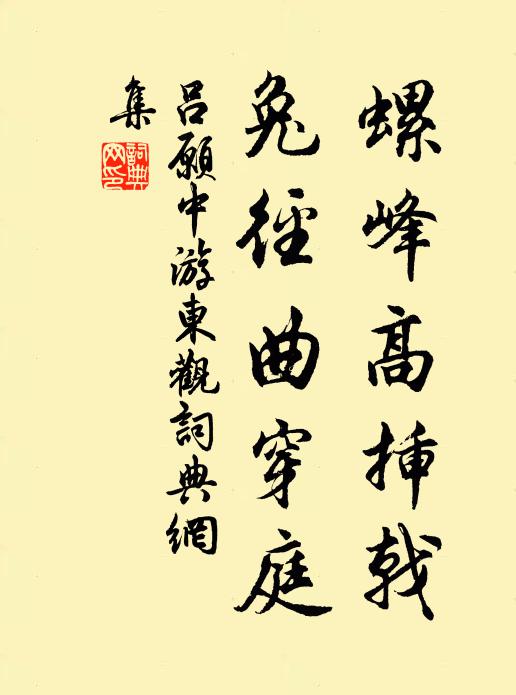 螺峰高插戟
兔徑曲穿庭
呂願中游東觀詞典網
集
詞典網印